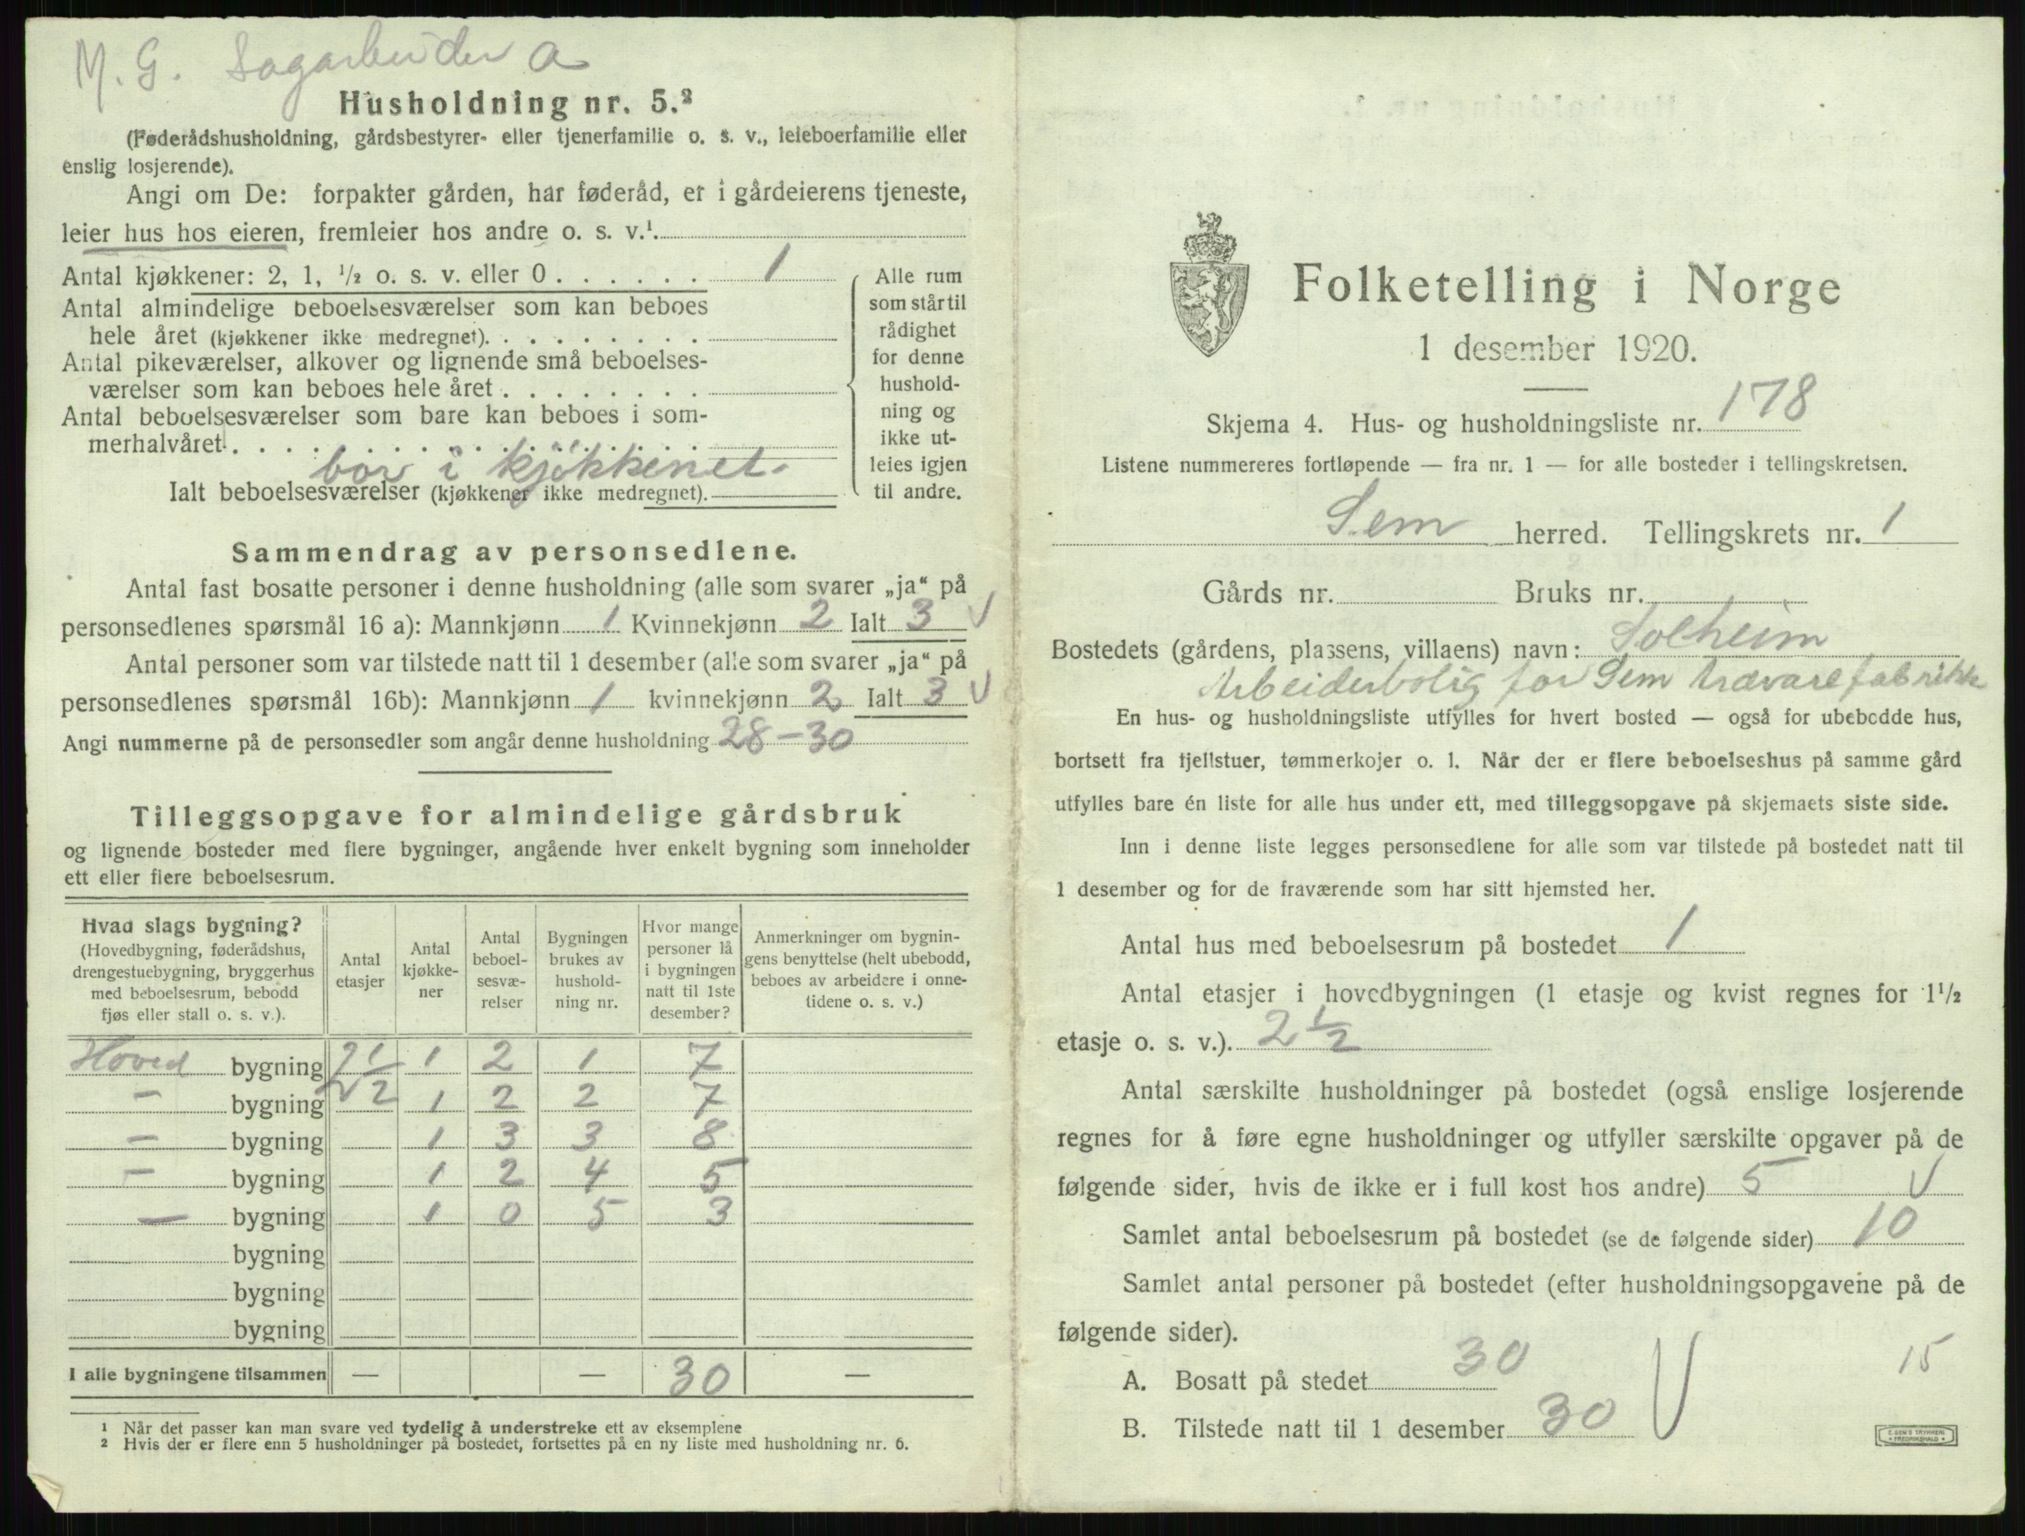 M. G. Sagarbeider a
Husholdning nr. 5.²
(Føderådshusholdning, gårdsbestyrer- eller tjenerfamilie o. s. v., leieboerfamilie eller
enslig losjerende).
Angi om De: forpakter gården, har føderåd, er i gårdeierens tjeneste,
leier hus hos eieren, fremleier hos andre o. s. v.¹
Antal kjøkkener: 2, 1, ½ o. s. v. eller 0 . . . . . . 1
Antal almindelige beboelsesværelser som kan beboes
hele året (kjøkkener ikke medregnet). . . . . . . . .
Antal pikeværelser, alkover og lignende små beboelses-
værelser som kan beboes hele året . . . . . . . .
Antal beboelsesværelser som bare kan beboes i som-
merhalvåret. . . . . . . . . . . . . . . . .
bor i kjøkkenet.
Ialt beboelsesværelser (kjøkkener ikke medregnet).
Alle rum
som står til
rådighet
for denne
hushold-
ning og
ikke ut-
leies igjen
til andre.
Sammendrag av personsedlene.
Antal fast bosatte personer i denne husholdning (alle som svarer „ja“ på
personsedlenes spørsmål 16 a): Mannkjønn 1 Kvinnekjønn 2 Ialt 3 V
Antal personer som var tilstede natt til 1 desember (alle som svarer „ja“ på
personsedlenes spørsmål 16b): Mannkjønn 1 kvinnekjønn 2 Ialt 3 V
Angi nummerne på de personsedler som angår denne husholdning 28-30
Tilleggsopgave for almindelige gårdsbruk
og lignende bosteder med flere bygninger, angående hver enkelt bygning som inneholder
ett eller flere beboelsesrum.
Hvad slags bygning?
(Hovedbygning, føderådshus,
drengestuebygning, bryggerhus
med beboelsesrum, bebodd
fjøs eller stall o. s. v.).
Antal
etasjer
Antal
kjøkke-
ner
Antal
beboel-
sesvæ-
relser
Bygningen
brukes av
hushold-
ning nr.
Hvor mange
personer lå
i bygningen
natt til 1ste
desember?
Anmerkninger om bygnin-
gens benyttelse (helt ubebodd,
beboes av arbeidere i onne-
tidene o. s. v.)
Hoved bygning 2½ 1 2 1 7
— bygning 1 2 2 7
— bygning 1 3 3 8
— bygning 1 2 4 5
— bygning 1 0 5 3
bygning
bygning
bygning
I alle bygningene tilsammen — — 30 —
¹ Når det passer kan man svare ved tydelig å understreke ett av eksemplene
² Hvis der er flere enn 5 husholdninger på bostedet, fortsettes på en ny liste med husholdning nr. 6.
Folketelling i Norge
1 desember 1920.
Skjema 4. Hus- og husholdningsliste nr. 178
Listene nummereres fortløpende — fra nr. 1 — for alle bosteder i tellingskretsen.
Sem herred. Tellingskrets nr. 1
Gårds nr. Bruks nr.
Bostedets (gårdens, plassens, villaens) navn: Solheim
Arbeiderbolig for Sem trævarefabrikk
En hus- og husholdningsliste utfylles for hvert bosted — også for ubebodde hus,
bortsett fra fjellstuer, tømmerkojer o. l. Når der er flere beboelseshus på samme gård
utfylles bare én liste for alle hus under ett, med tilleggsopgave på skjemaets siste side.
Inn i denne liste legges personsedlene for alle som var tilstede på bostedet natt til
1 desember og for de fraværende som har sitt hjemsted her.
Antal hus med beboelsesrum på bostedet 1
Antal etasjer i hovedbygningen (1 etasje og kvist regnes for 1½
etasje o. s. v.). 2½
Antal særskilte husholdninger på bostedet (også enslige losjerende
regnes for å føre egne husholdninger og utfyller særskilte opgaver på de
følgende sider, hvis de ikke er i full kost hos andre) 5 V
Samlet antal beboelsesrum på bostedet (se de følgende sider) 10
Samlet antal personer på bostedet (efter husholdningsopgavene på de
følgende sider).
A. Bosatt på stedet 30
15
B. Tilstede natt til 1 desember 30 V
E. SEM'S TRYKKERI
FREDRIKSHALD